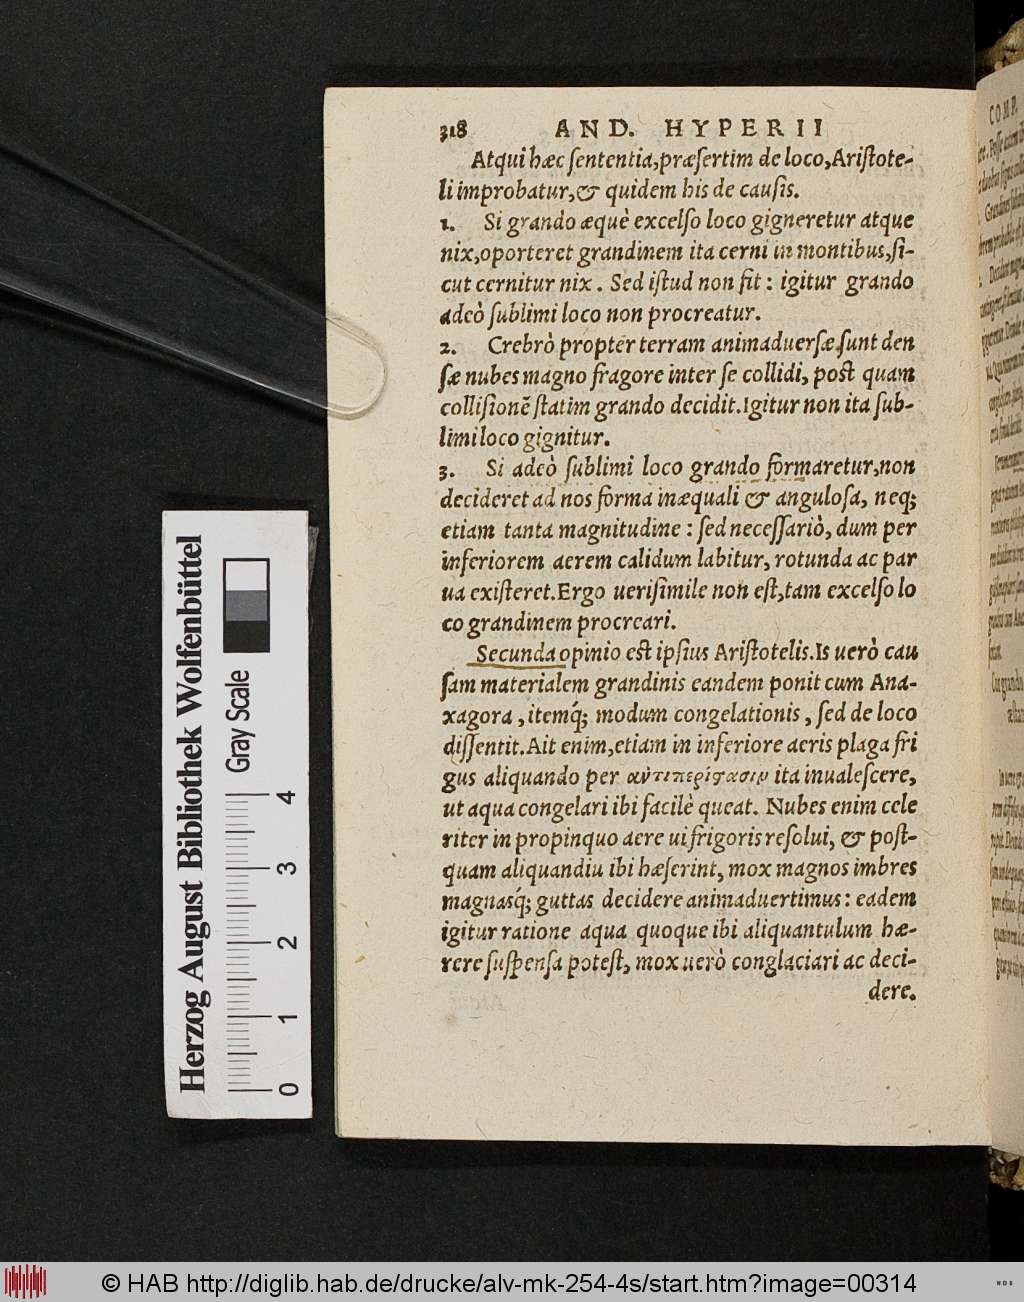 318 AND. HYPERII
Atqui hæc sententia, præsertim de loco, Aristote-
li improbatur, & quidem his de causis.
1. Si grando æquè excelso loco gigneretur atque
nix, oporteret grandinem ita cerni in montibus, si-
cut cernitur nix. Sed istud non fit: igitur grando
adeò sublimi loco non procreatur.
2. Crebrò propter terram animaduersæ sunt den
sæ nubes magno fragore inter se collidi, post quam
collisionẽ statim grando decidit. Igitur non ita sub-
limi loco gignitur.
3. Si adeò sublimi loco grando formaretur, non
decideret ad nos forma inæquali & angulosa, neq;
etiam tanta magnitudine: sed necessariò, dum per
inferiorem aerem calidum labitur, rotunda ac par
ua existeret. Ergo uerisimile non est, tam excelso lo
co grandinem procreari.
Secunda opinio est ipsius Aristotelis. Is uerò cau
sam materialem grandinis eandem ponit cum Ana-
xagora, itemq́; modum congelationis, sed de loco
dissentit. Ait enim, etiam in inferiore aeris plaga fri
gus aliquando per αὐτιπερίϛασιν ita inualescere,
ut aqua congelari ibi facilè queat. Nubes enim cele
riter in propinquo aere ui frigoris resolui, & post-
quam aliquandiu ibi hæserint, mox magnos imbres
magnasq́; guttas decidere animaduertimus: eadem
igitur ratione aqua quoque ibi aliquantulum hæ-
rere suspensa potest, mox uerò conglaciari ac deci-
dere.
Herzog August Bibliothek Wolfenbüttel
Gray Scale
0 1 2 3 4
© HAB http://diglib.hab.de/drucke/alv-mk-254-4s/start.htm?image=00314